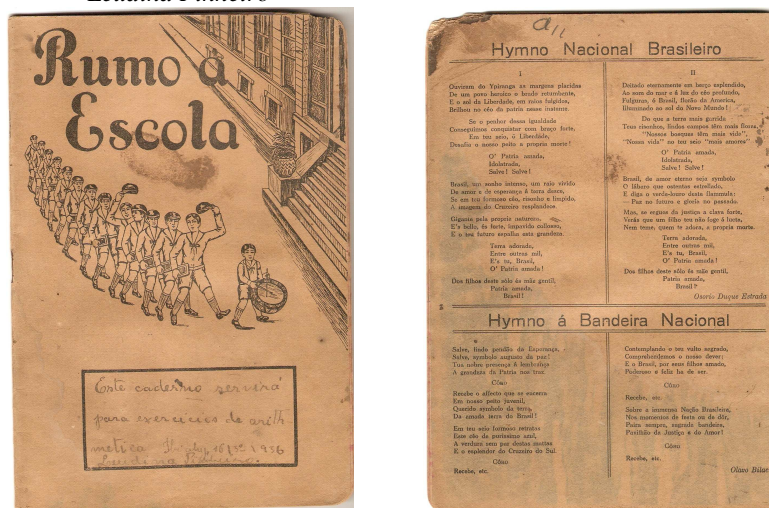 Rumo á
Escola
Este caderno servirá
para exercicios de arith
metica
1936
Hymno Nacional Brasileiro
I
Ouviram do Ypiranga as margens placidas
De um povo heroico o brado retumbante,
E o sol da Liberdade, em raios fulgidos,
Brilhou no céo da patria nesse instante.
Se o penhor dessa igualdade
Conseguimos conquistar com braço forte,
Em teu seio, ó Liberdade,
Desafia o nosso peito a propria morte!
O' Patria amada,
Idolatrada,
Salve! Salve!
Brasil, um sonho intenso, um raio vivido
De amor e de esperança á terra desce,
Se em teu formoso céo, risonho e limpido,
A imagem do Cruzeiro resplandece.
Gigante pela propria natureza,
E's bello, és forte, impavido colosso,
E o teu futuro espelha esta grandeza.
Terra adorada,
Entre outras mil,
E's tu, Brasil,
O' Patria amada!
Dos filhos deste sólo és mãe gentil,
Patria amada,
Brasil!
II
Deitado eternamente em berço esplendido,
Ao som do mar e á luz do céo profundo,
Fulguras, ó Brasil, florão da America,
Illuminado ao sol do Novo Mundo!
Do que a terra mais garrida
Teus risonhos, lindos campos têm mais flores,
"Nossos bosques têm mais vida",
"Nossa vida" no teu seio "mais amores"
O' Patria amada,
Idolatrada,
Salve! Salve!
Brasil, de amor eterno seja symbolo
O lábaro que ostentas estrellado,
E diga o verde-louro desta flammula:
— Paz no futuro e gloria no passado.
Mas, se ergues da justiça a clava forte,
Verás que um filho teu não foge á lucta,
Nem teme, quem te adora, a propria morte.
Terra adorada,
Entre outras mil,
E's tu, Brasil,
O' Patria amada!
Dos filhos deste sólo és mãe gentil,
Patria amada,
Brasil!
Osorio Duque Estrada
Hymno á Bandeira Nacional
Salve, lindo pendão da Esperança,
Salve, symbolo augusto da paz!
Tua nobre presença á lembrança
A grandeza da Patria nos traz
Côro
Recebe o affecto que se encerra
Em nosso peito juvenil,
Querido symbolo da terra,
Da amada terra do Brasil!
Em teu seio formoso retratas
Este céo de purissimo azul,
A verdura sem par destas mattas
E o esplendor do Cruzeiro do Sul.
Côro
Recebe, etc.
Contemplando o teu vulto sagrado,
Comprehendemos o nosso dever;
E o Brasil, por seus filhos amado,
Poderoso e feliz ha de ser.
Côro
Recebe, etc.
Sobre a immensa Nação Brasileira,
Nos momentos de festa ou de dôr,
Paira sempre, sagrada bandeira,
Pavilhão da Justiça e do Amor!
Côro
Recebe, etc.
Olavo Bilac